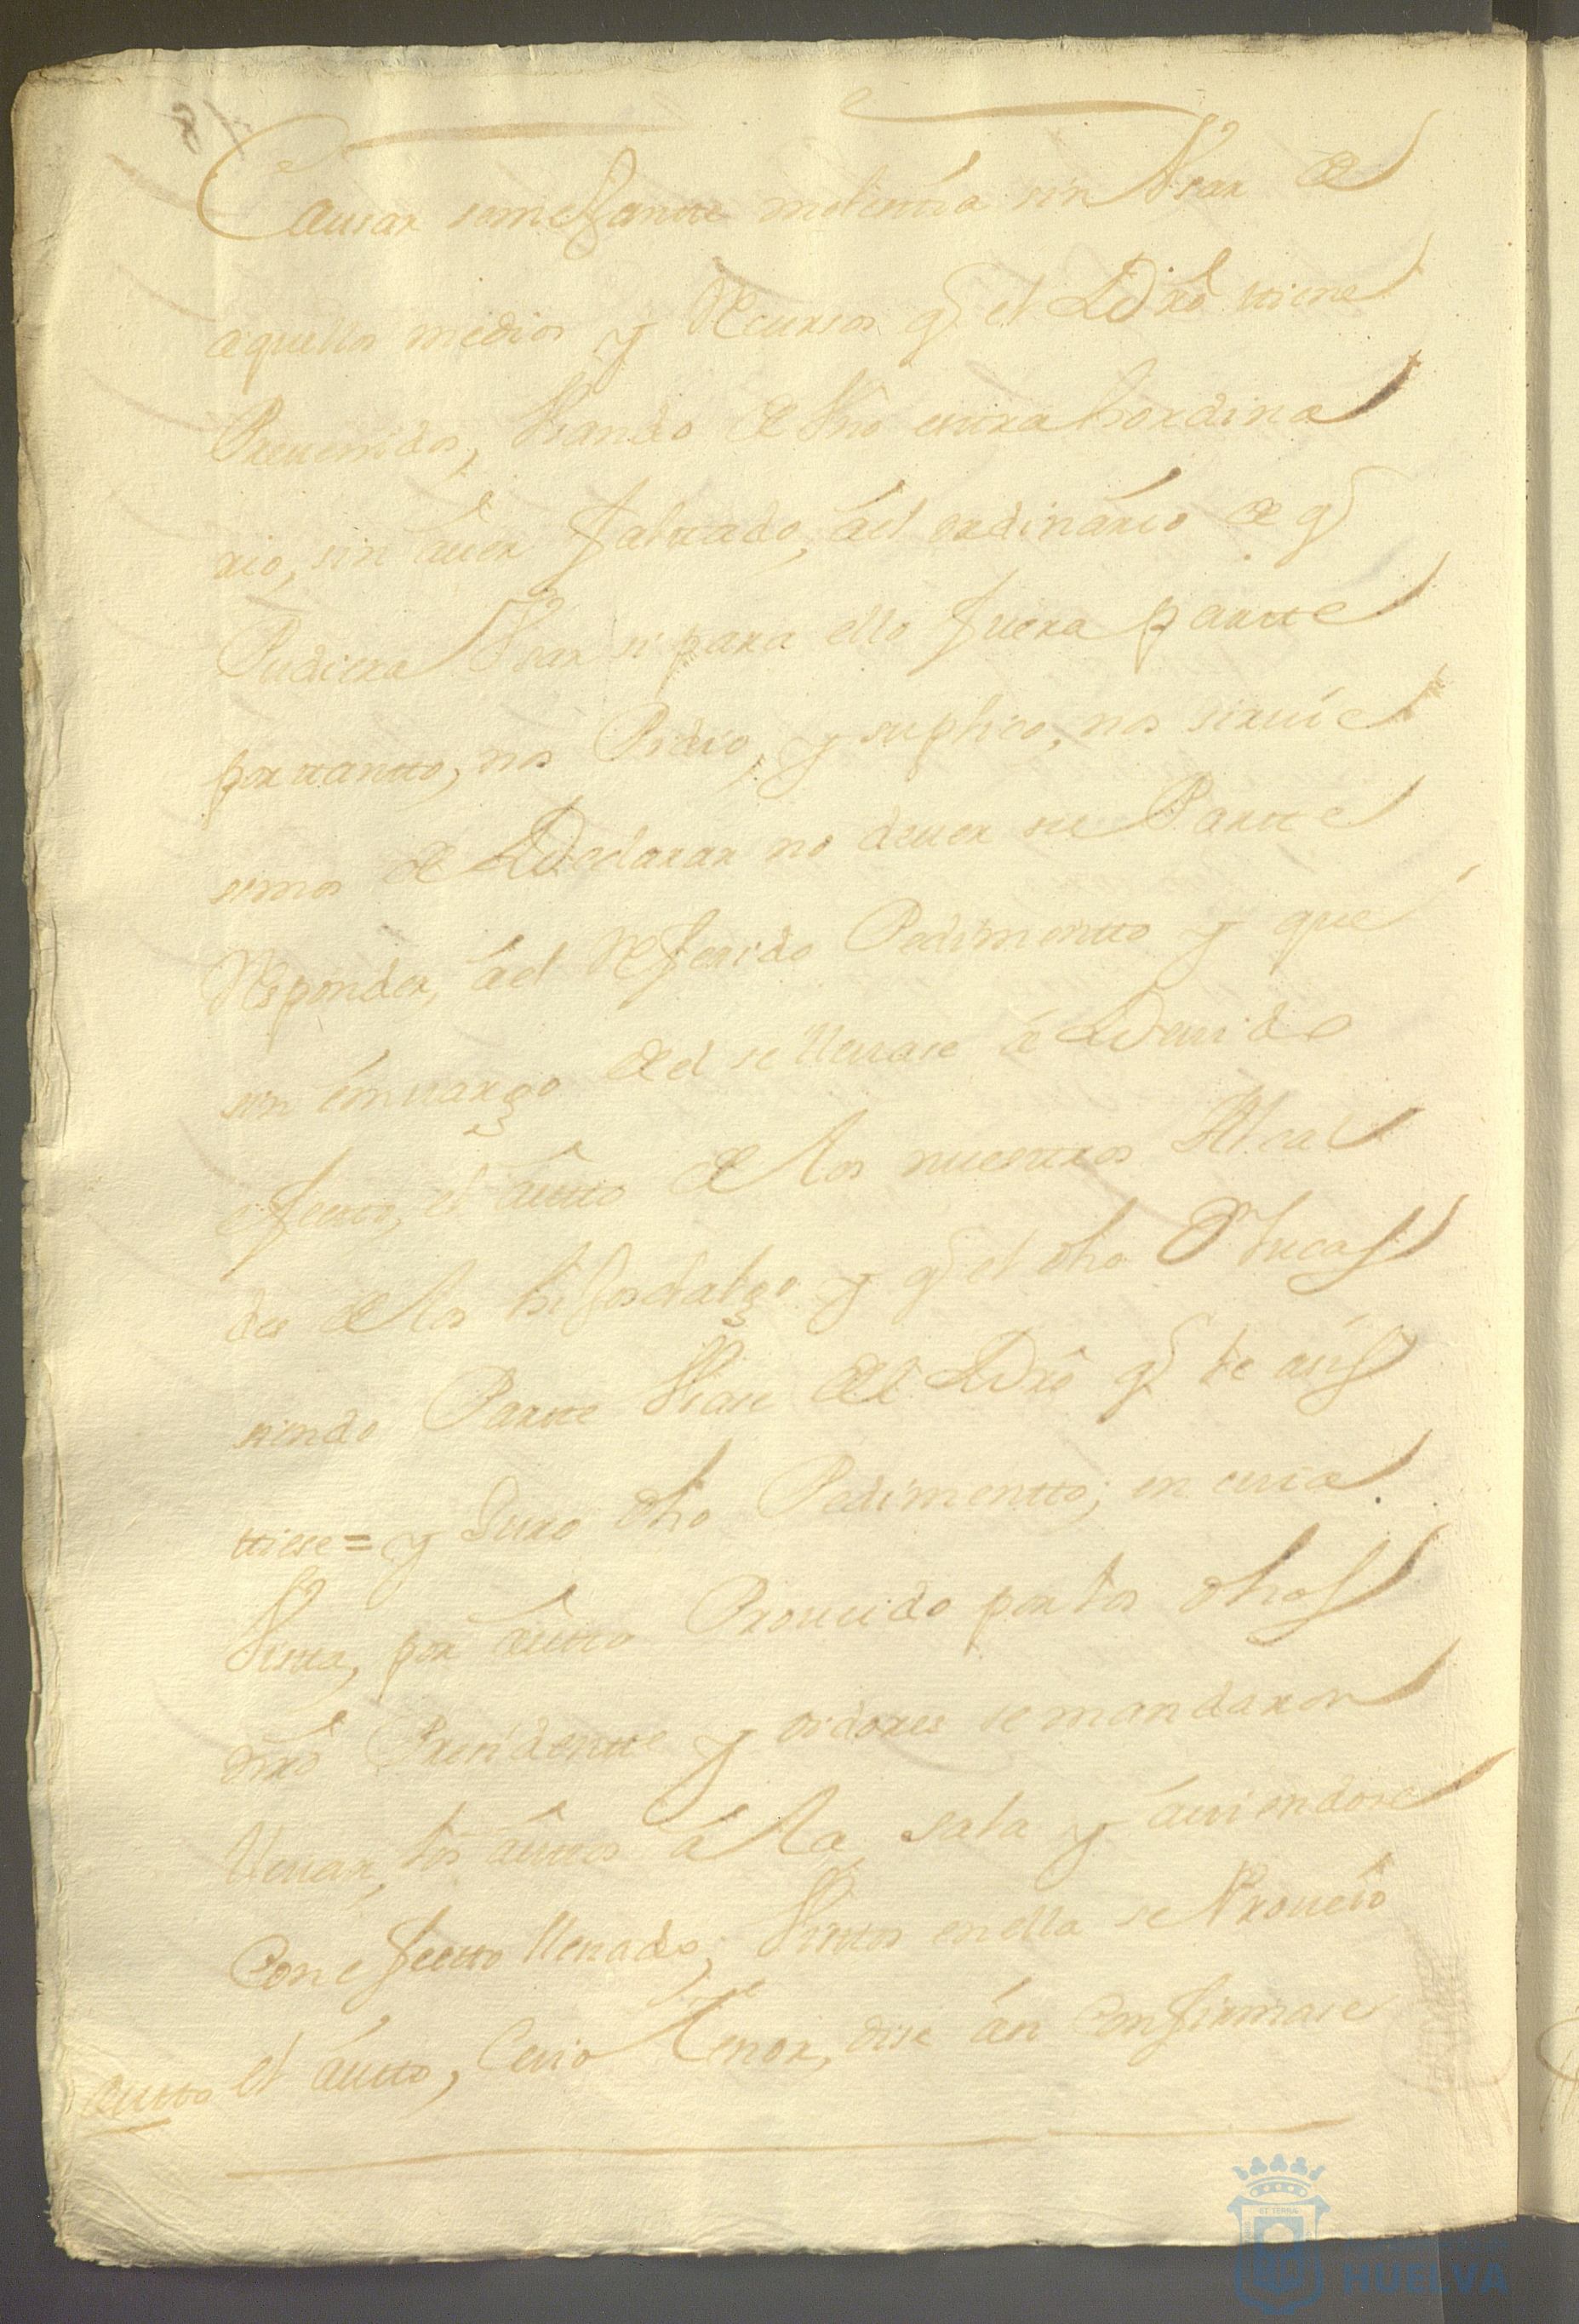 Causar semejantte molesttia sin Vsar de
aquellos medios y Recursos q̃ el Dr̃o ttiene
Preuenidos, Vsando de Vno exttrahordina
rio, sin áuer faltado, áel ordinário de q̃
Pudiera Vsar si para ello fuera partte
porttantto, nos Pidio, y suplico, nos siruie
semos de Declarar no deuer su Partte
Responder, áel Referido Pedimentto y que
sin émuargo del se lleuase á Deuido
efectto, el áutto de los nuesttros Alcal
des de los hijosdalgo y q̃ el dho Dn Lucas
siendo Partte Vsase del Dr̃o q̃ le asis
ttiese = y Juro dho Pedimentto; en cuia
Vistta, por áutto Proueido por los dhos
nr̃o Presidentte y oidores se mandaron
lleuar, los áuttos á la sala y áuiendose
Con efectto lleuado, Visttos en ella se Proueió
el áutto, Cuio thenor, dise ási Confirmase
autto
HUELVA